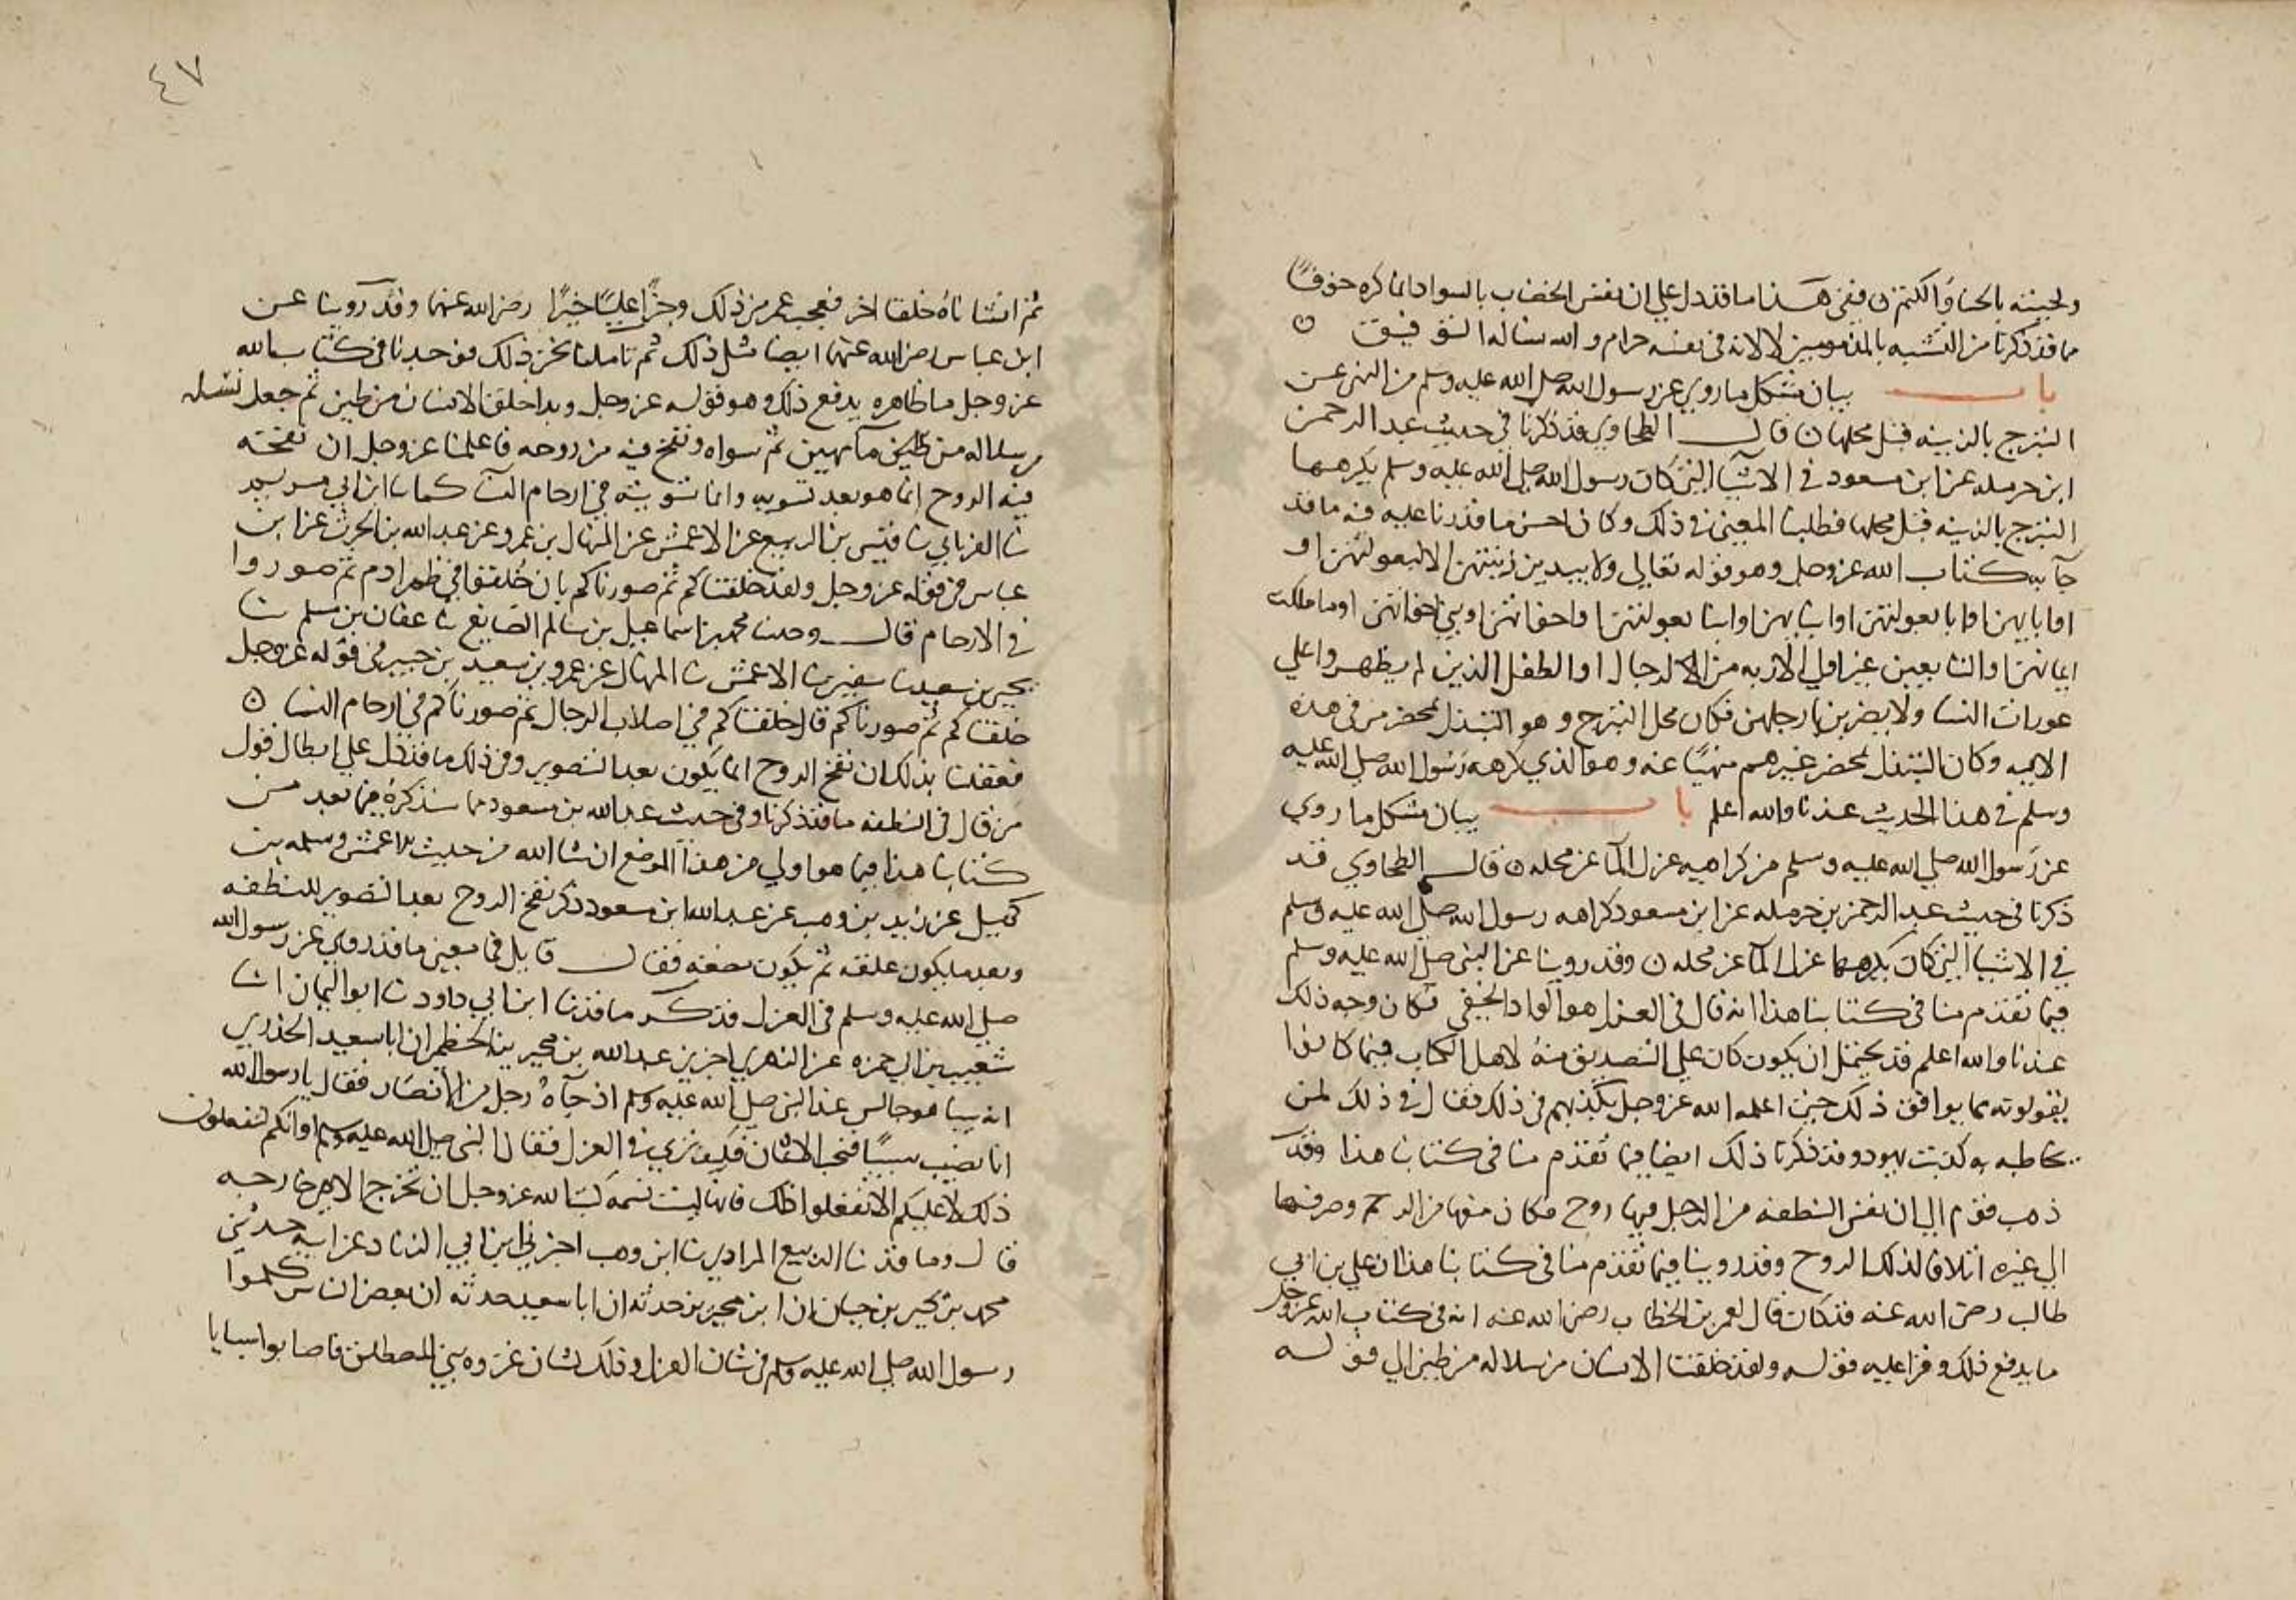 ولحيته بالحنا والكتم ن ففى هذا ما قد دل علي ان نفس الخضاب بالسواد انما كره خوفا
مما قد ذكرنا من التشبه بالمذمومين لا لانه فى نفسه حرام والله نساله التوفيق ن
باب بيان مشكل ما روي عن رسول الله صلى الله عليه وسلم من النهى عن
التبرج بالزينه قبل محلها ن قال الطحاوي قد ذكرنا في حديث عبد الرحمن
ابن حرمله عن ابن مسعود في الاشيا التي كان رسول الله صلى الله عليه وسلم يكرهها
التبرج بالزينه قبل محلها فطلبنا المعنى في ذلك وكان احسن ما قدرنا عليه فيه ما قد
جا به كتاب الله عز وجل وهو قوله تعالي ولا يبدين زينتهن الا لبعولتهن او
اوابايهن او ابا بعولتهن او ابنايهن او ابنا بعولتهن او اخوانهن او بني اخوانهن او ما ملكت
ايمانهن او التابعين غير اولي الاربه من الرجال او الطفل الذين لم يظهروا علي
عورات النسا ولا يضربن بارجلهن فكان محل التبرج وهو التبذل بمحضر من فى هذه
الايه وكان التبذل بمحضر غيرهم منهيا عنه وهو الذي كرهه رسول الله صلى الله عليه
وسلم في هذا الحديث عندنا والله اعلم باب بيان مشكل ما روي
عن رسول الله صلى الله عليه وسلم من كراهيه عزل الما عن محله ن قال الطحاوي قد
ذكرنا فى حديث عبد الرحمن بن حرمله عن ابن مسعود كراهه رسول الله صلى الله عليه وسلم
في الاشيا التي كان يكرهها عزل الما عن محله ن وقد روينا عن النبى صلى الله عليه وسلم
فيما تقدم منا فى كتابنا هذا انه قال فى العزل هو الواد الخفي فكان وجه ذلك
عندنا والله اعلم قد يحتمل ان يكون كان علي التصديق منه لاهل الكتاب فيما كانوا
يقولونه مما يوافق ذلك حين اعلمه الله عز وجل بكذبهم فى ذلك فقال في ذلك لمن
خاطبه به كذبت يهود وقد ذكرنا ذلك ايضا فيما تقدم منا فى كتابنا هذا وقد
ذهب قوم الي ان نفس النطفه من الرجل فيها روح فكان منعها من الرحم وصرفها
الي غيره اتلاف لذلك الروح وقد روينا فيما تقدم منا فى كتابنا هذا ان علي بن ابي
طالب رضى الله عنه قد كان قال لعمر بن الخطاب رضى الله عنه انه فى كتاب الله عز وجل
ما يدفع ذلك وقرا عليه قوله ولقد خلقنا الانسان من سلاله من طين الي قوله
٤٧
ثم انشاناه خلقا اخر فعجب عمر من ذلك وجزا عليا خيرا رضى الله عنهما وقد روينا عن
ابن عباس رضى الله عنهما ايضا مثل ذلك ثم تاملنا نحن ذلك فوجدنا فى كتاب الله
عز وجل ما ظاهره يدفع ذلك وهو قوله عز وجل وبدا خلق الانسان من طين ثم جعل نسله
من سلاله من ماء مهين ثم سواه ونفخ فيه من روحه فاعلمنا عز وجل ان نفخه
فيه الروح انما هو بعد تسويه وانما تسويته في ارحام النسا كما نا ابن ابي مريم
نا الفريابي نا قيس بن الربيع عن الاعمش عن المنهال بن عمرو عن عبد الله بن الحرث عن ابن
عباس فى قوله عز وجل ولقد خلقناكم ثم صورناكم بان خلقوا في ظهر ادم ثم صوروا
في الارحام قال وحدثنا محمد بن اسماعيل بن سالم الصايغ نا عفان بن مسلم نا
يحيى بن سعيد نا سفين نا الاعمش نا المنهال عن عمرو بن سعيد بن جبير فى قوله عز وجل
خلقناكم ثم صورناكم قال خلقناكم في اصلاب الرجال ثم صورناكم في ارحام النسا ن
فعقلنا بذلك ان نفخ الروح انما يكون بعد التصوير وفى ذلك ما قد دل علي ابطال قول
من قال فى النطفه ما قد ذكرنا وفى حديث عبد الله بن مسعود مما سنذكره فيما بعد من
كتابنا هذا فيما هو اولي من هذا الموضع ان شا الله من حديث الاعمش وسلمه بن
كهيل عن زيد بن وهب عن عبد الله ابن مسعود ذكر نفخ الروح بعد التصوير للنطفه
وبعد ما يكون علقه ثم يكون مضغه فقال قايل فما معنى ما قد روي عن رسول الله
صلى الله عليه وسلم فى العزل فذكر ما قد نا ابن ابي داود نا ابو اليمان انا
شعيب بن ابي حمزه عن الزهري اخبرني عبد الله بن محيريز الجمحي ان ابا سعيد الخدري
انه بينا هو جالس عند النبى صلى الله عليه وسلم اذ جاه رجل من الانصار فقال يا رسول الله
انا نصيب سبيا فنحب الاثمان فكيف تري في العزل فقال النبى صلى الله عليه وسلم او انكم لتفعلون
ذلك لا عليكم الا تفعلوا ذلك فانها ليست نسمه كتب الله عز وجل ان تخرج الا هي خارجه
قال وما قد نا الربيع المرادي نا ابن وهب اخبرني ابن ابي الزناد عن ابيه حدثني
محمد بن يحيى بن حبان ان ابن محيريز حدثه ان ابا سعيد حدثه ان بعض الناس كلموا
رسول الله صلى الله عليه وسلم فى شان العزل وذلك لشان غزوه بني المصطلق فاصابوا سبايا